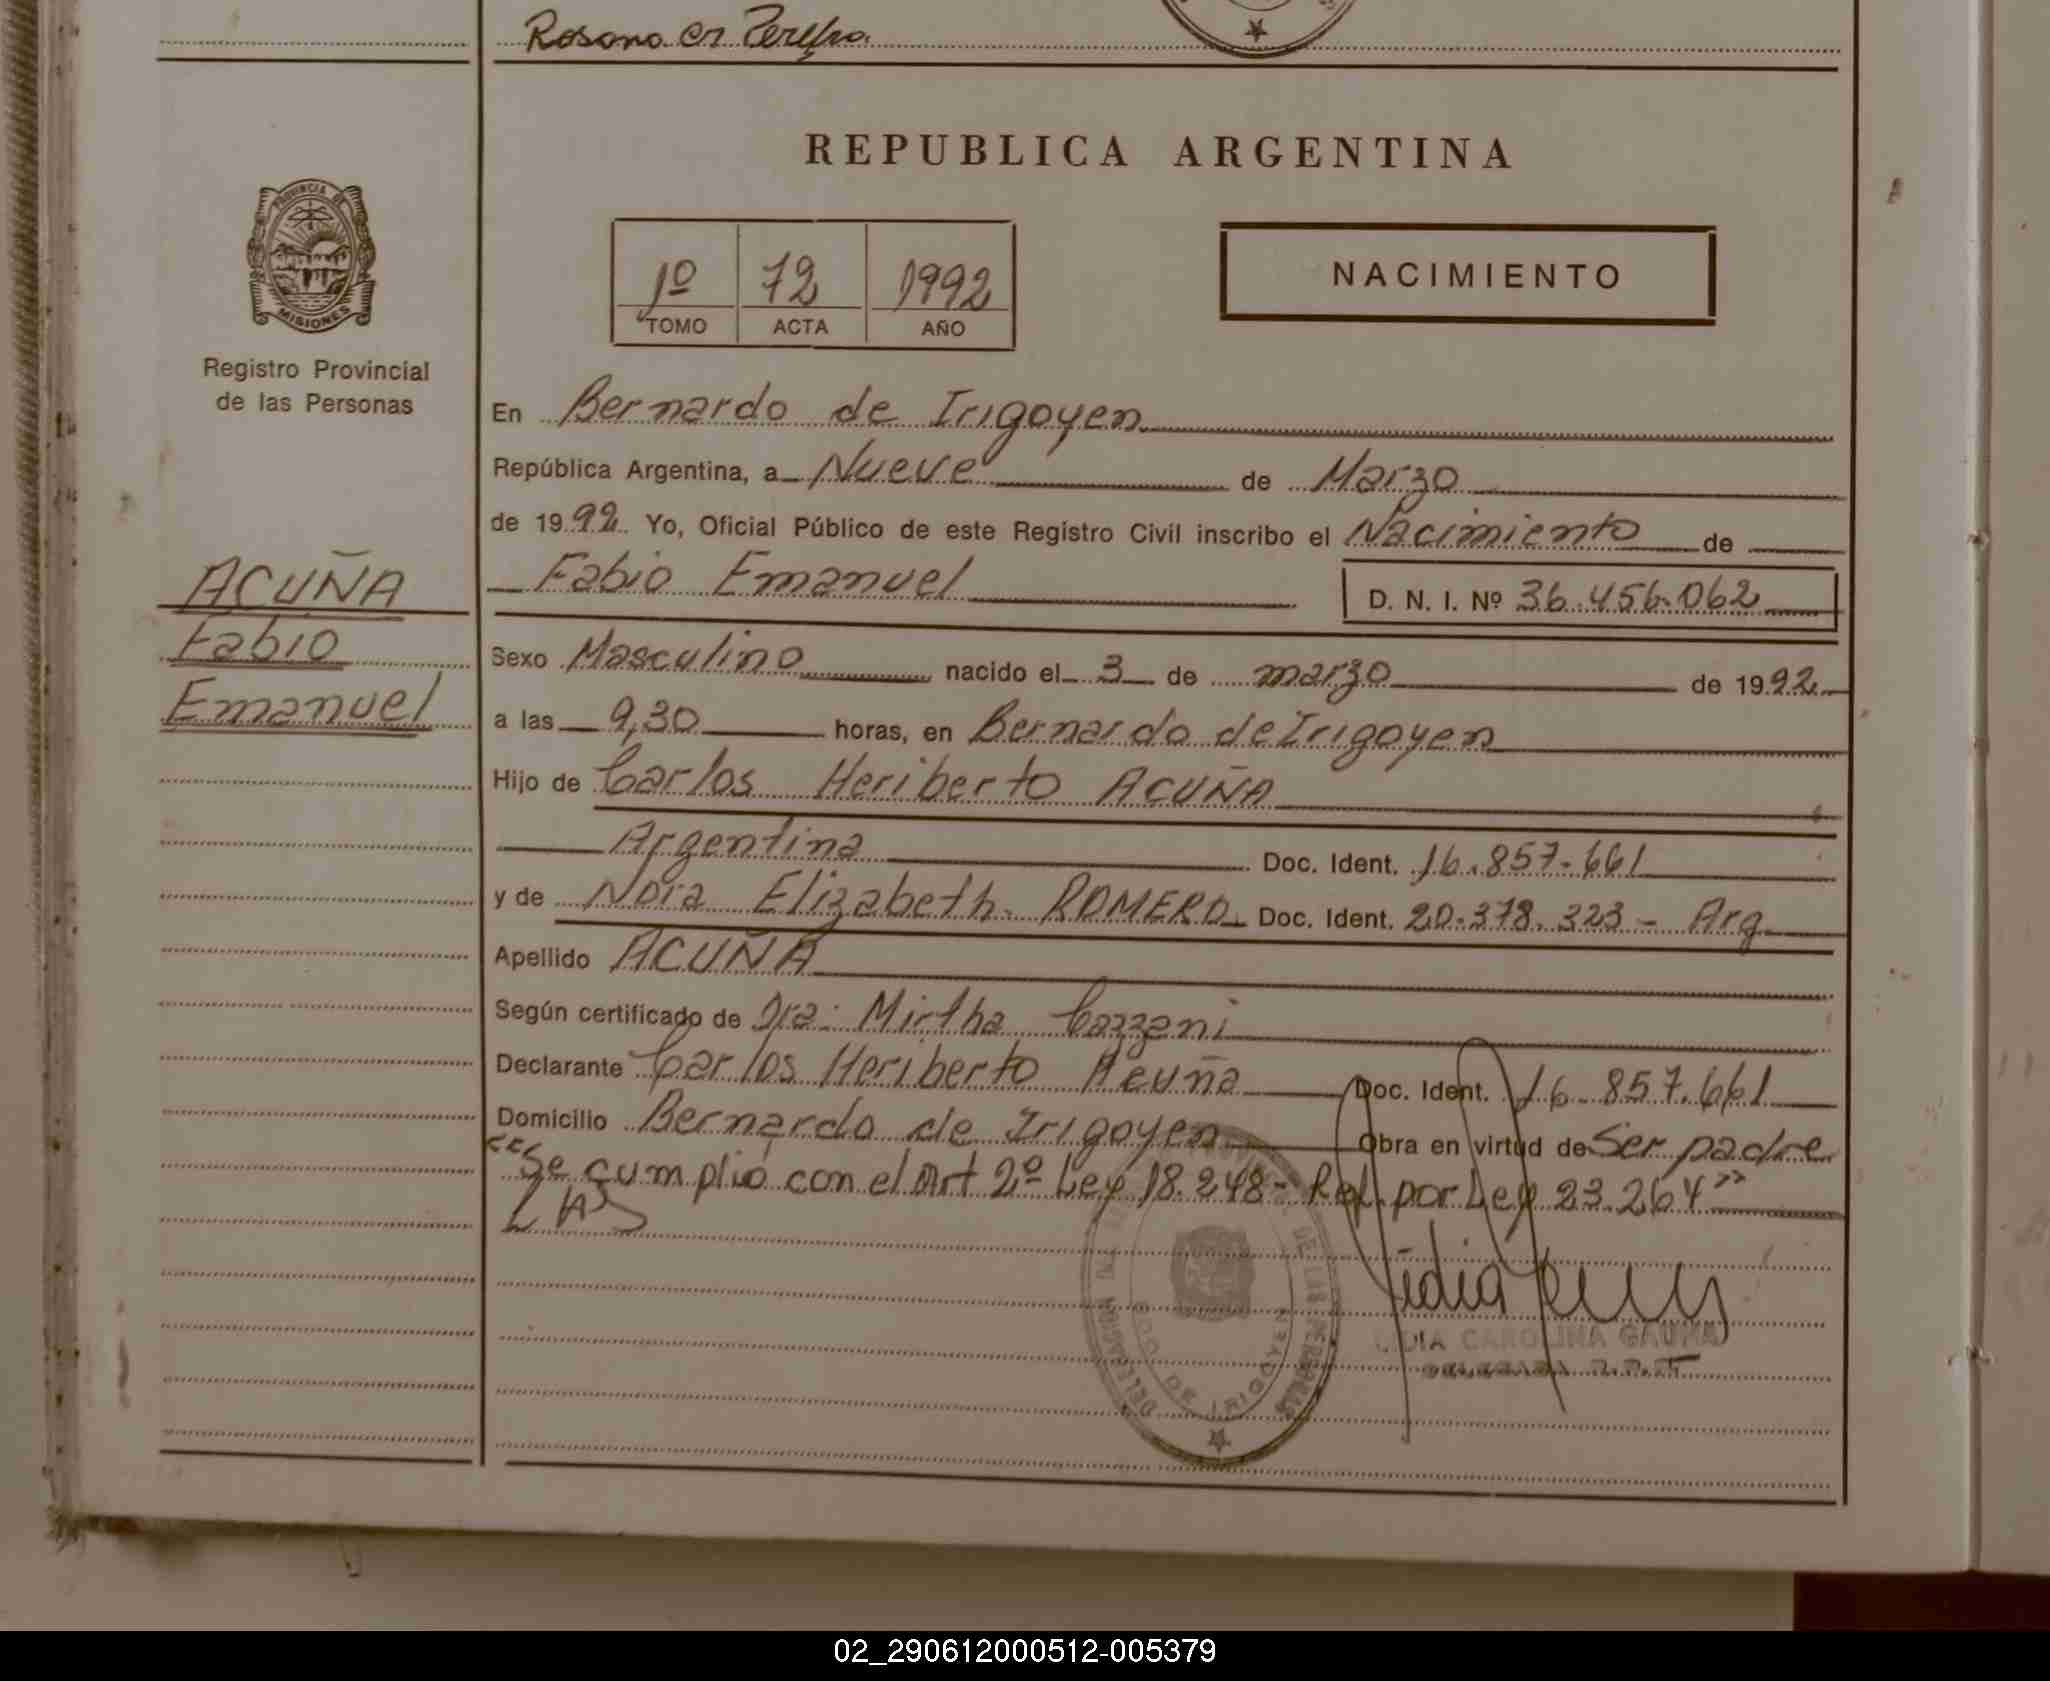 REPUBLICA ARGENTINA
PROVINCIA DE
MISIONES
Registro Provincial
de las Personas
1º 72 1992
TOMO ACTA AÑO
NACIMIENTO
ACUÑA
Fabio
Emanuel
En Bernardo de Irigoyen
República Argentina, a Nueve de Marzo
de 1992 Yo, Oficial Público de este Registro Civil inscribo el Nacimiento de
Fabio Emanuel D. N. I. Nº 36.456.062
Sexo Masculino nacido el 3 de marzo de 1992
a las 9,30 horas, en Bernardo de Irigoyen
Hijo de Carlos Heriberto ACUÑA
Argentina Doc. Ident. 16.857.661
y de Nora Elizabeth ROMERO Doc. Ident. 20.378.323 - Arg
Apellido ACUÑA
Según certificado de Dra: Mirtha Cazzani
Declarante Carlos Heriberto Acuña Doc. Ident. 16.857.661
Domicilio Bernardo de Irigoyen Obra en virtud de Ser padre
"Se cumplió con el Art 2º Ley 18.248 - Ref. por Ley 23.264"
DELEGACION DE LAS PERSONAS
BDO DE IRIGOYEN
LIDIA CAROLINA GAUNA
02_290612000512-005379